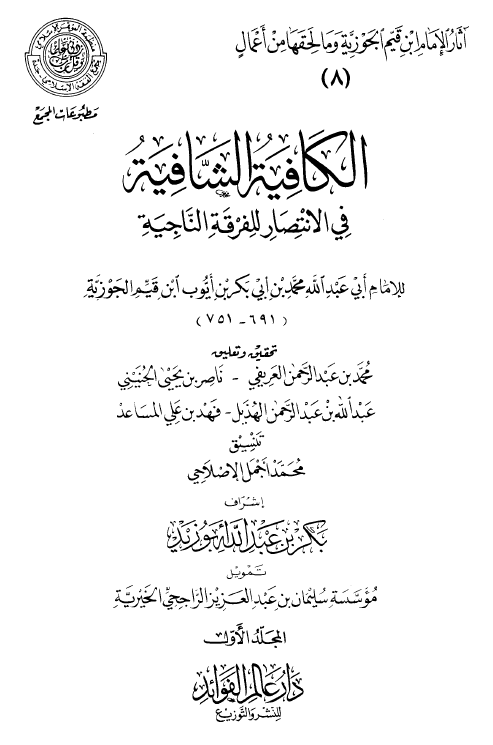 آثار الإمام ابن قيم الجوزية وما لحقها من أعمال
(٨)
مطبوعات المجمع
الكافية الشافية
في الانتصار للفرقة الناجية
للإمام أبي عبد الله محمد بن أبي بكر بن أيوب ابن قيم الجوزية
(٦٩١ - ٧٥١)
تحقيق وتعليق
محمد بن عبد الرحمن العريفي - ناصر بن يحيى الجنيني
عبد الله بن عبد الرحمن الهذيل - فهد بن علي المساعد
تنسيق
محمد أجمل الإصلاحي
إشراف
بكر بن عبد الله أبو زيد
تمويل
مؤسسة سليمان بن عبد العزيز الراجحي الخيرية
المجلد الأول
دار عالم الفوائد
للنشر والتوزيع